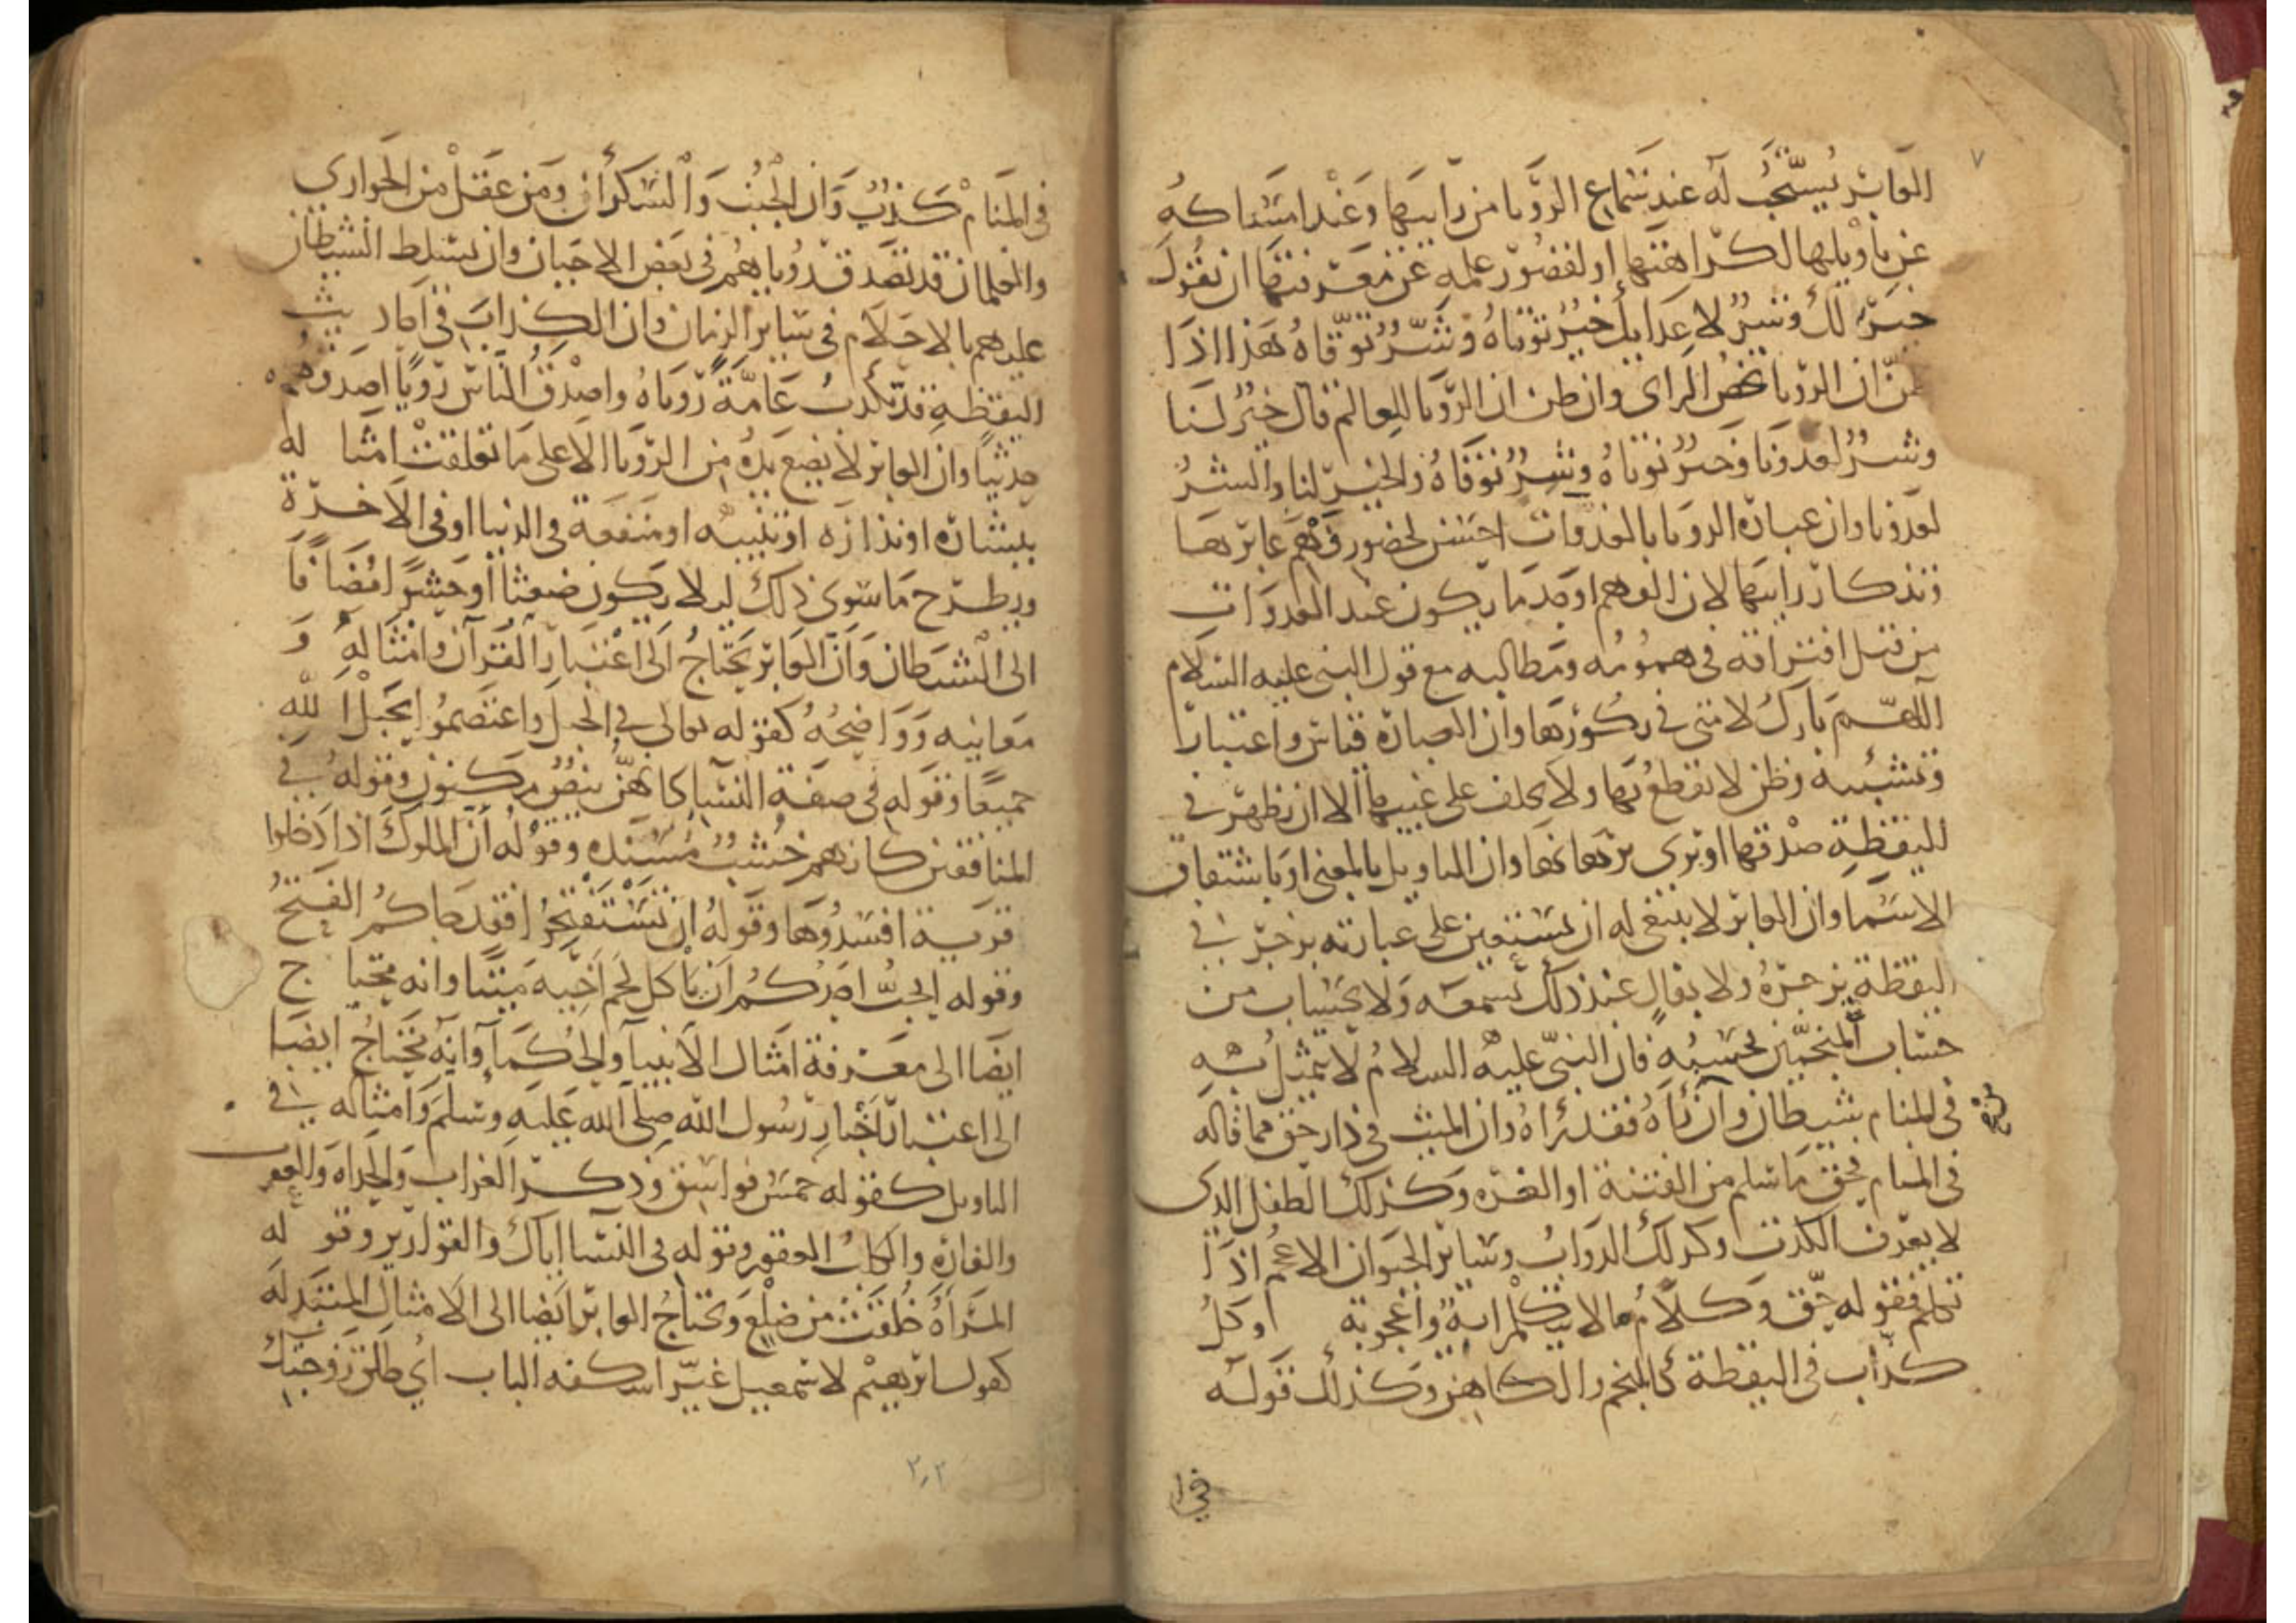 ٧
العابر يستحب له عند سماع الرويا من رايها وعند امساكه
عن تاويلها لكراهتها او لقصور علمه عن معرفتها ان يقول
خير لك وشر لاعدايك خير توتاه وشر توقاه هذا اذا
ظن ان الرويا تخص الراى وان ظن ان الرويا للعالم قال خير لنا
وشر لعدونا وخير نوتاه وشر نوقاه والخير لنا والشر
لعدونا وان عبارة الرويا بالغدوات احسن لحضور فهم عابرها
وتذكار رايها لان الفهم اوجد ما يكون عند الغدوات
من قبل افتراقه في همومه ومطالبه مع قول النبى عليه السلام
اللهم بارك لامتى في بكورها وان العبارة قياس واعتبار
وتشبيه وظن لا يقطع بها ولا يحلف على غيبها الا ان يظهر في
اليقظة صدقها او يرى برهانها وان التاويل بالمعنى او باشتقاق
الاسما وان العابر لا ينبغى له ان يستعين على عبارته بزجر في
اليقظة يزجره ولا بفال عند ذلك يسمعه ولا بحساب من
حساب المنجمين يحسبه فان النبي عليه السلام لا يتمثل به
في المنام شيطان وان راه فقد راه وان الميت في دار حق فما قاله
في المنام فحق ما سلم من الفتنة او الغره وكذلك الطفل الذى
لا يعرف الكذب وكذلك الدواب وساير الحيوان الاعجم اذا
تكلم فقوله حق وكلام ما لا يتكلم اية واعجوبة وكل
كذاب في اليقظة كالمنجم والكاهن وكذلك قوله
في المنام كذب وان الجنب والسكران ومن عقل من الجوارى
والغلمان قد تصدق روياهم في بعض الاحيان وان يسلط الشيطان
عليهم بالاحلام في ساير الزمان وان الكذاب في احاديث
اليقظة قد تكذب عامة روياه واصدق الناس رويا اصدقهم
حديثا وان العابر لا يضع يده من الرويا الا على ما تعلقت امثاله
ببشارة او نذارة او تنبيه او منفعة في الدنيا او في الاخرة
ويطرح ما سوى ذلك ليلا يكون ضغثا او حشوا مضافا
الى الشيطان وان العابر يحتاج الى اعتبار القران وامثاله و
معانيه وواضحه كقوله تعالى في الحبل واعتصموا بحبل الله
جميعا وقوله في صفة النسا كانهن بيض مكنون وقوله في
المنافقين كانهم خشب مسنده وقوله ان الملوك اذا دخلوا
قرية افسدوها وقوله ان تستفتحوا فقد جاكم الفتح
وقوله ايحب احدكم ان ياكل لحم اخيه ميتا وانه يحتاج
ايضا الى معرفة امثال الانبيا والحكما وانه يحتاج ايضا
الى اعتبار اخبار رسول الله صلى الله عليه وسلم وامثاله في
التاويل كقوله خمس فواسق وذكر الغراب والحداه والعقرب
والفارة والكلب العقور وقوله في النسا اياك والقوارير وقوله
المراة خلقت من ضلع ويحتاج العابر ايضا الى الامثال المبتذله
كقول ابرهيم لاسمعيل غير اسكفه الباب اى طلق زوجتك